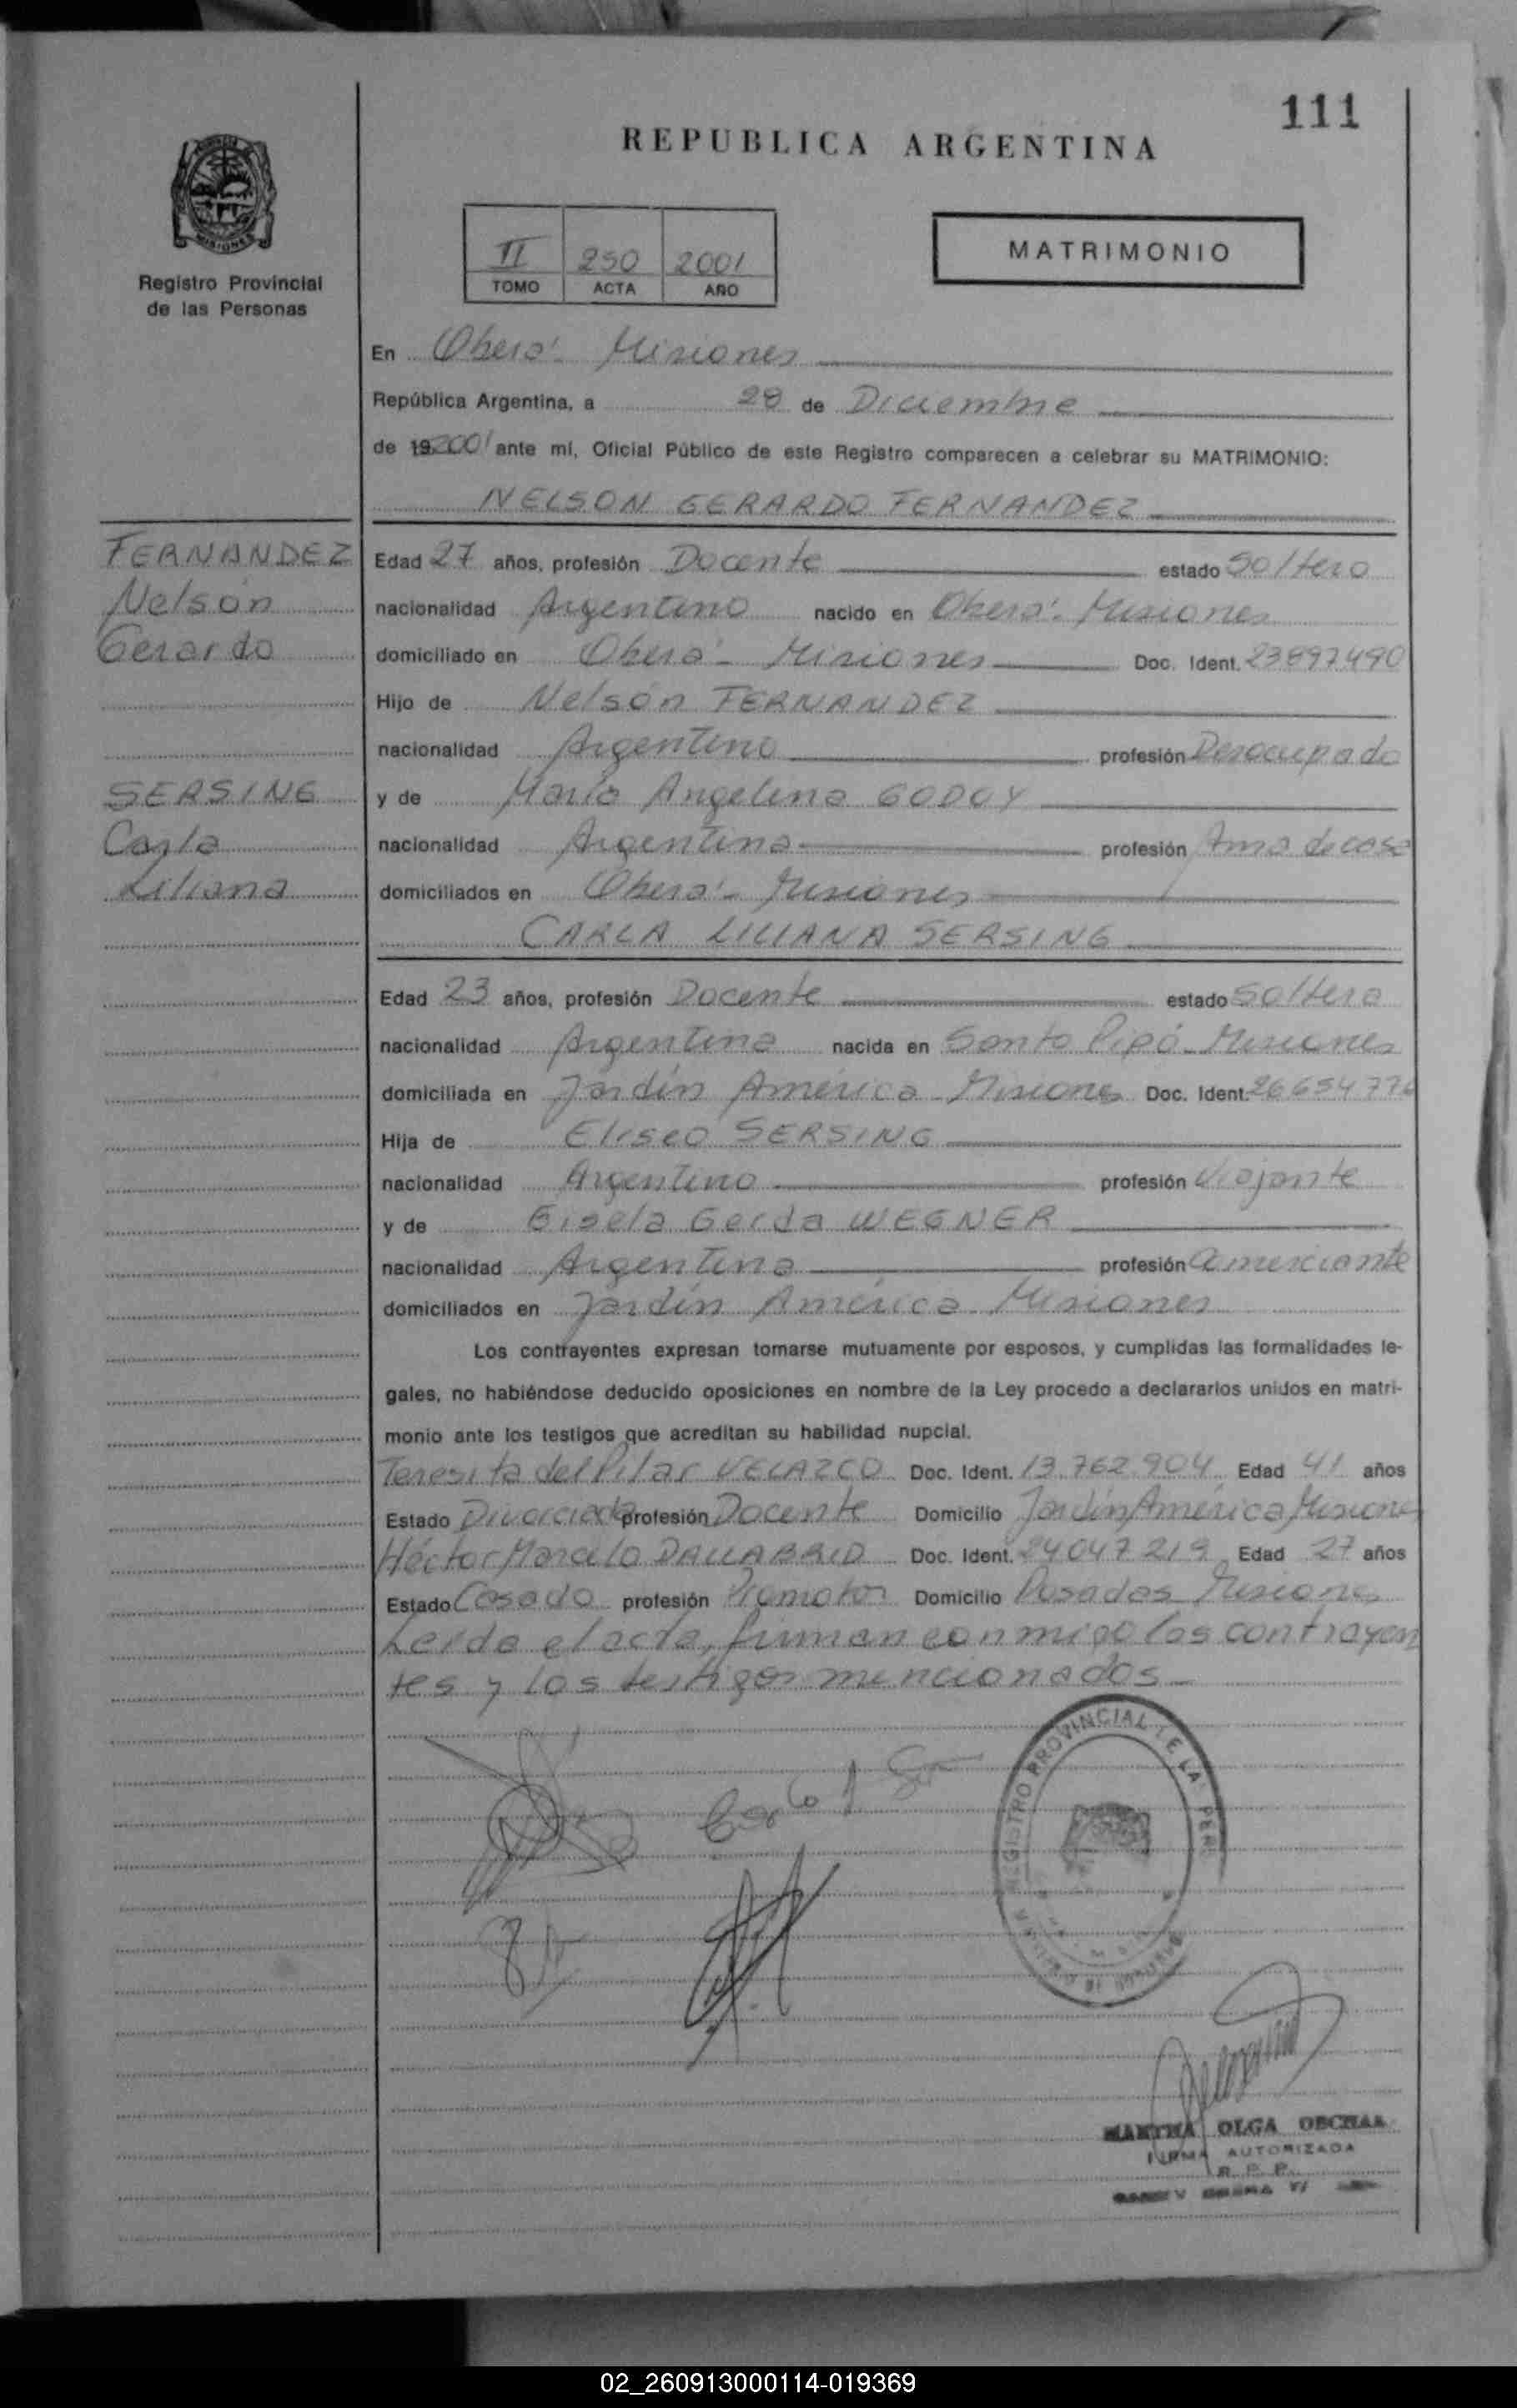 111
REPUBLICA ARGENTINA
MISIONES
Registro Provincial
de las Personas
II 250 2001
TOMO ACTA AÑO
MATRIMONIO
En Oberá - Misiones
República Argentina, a 28 de Diciembre
de 19 2001 ante mí, Oficial Público de este Registro comparecen a celebrar su MATRIMONIO:
NELSON GERARDO FERNANDEZ
FERNANDEZ
Nelsón
Gerardo
Edad 27 años, profesión Docente estado Soltero
nacionalidad Argentino nacido en Oberá - Misiones
domiciliado en Oberá - Misiones Doc. Ident. 23897490
Hijo de Nelsón FERNANDEZ
nacionalidad Argentino profesión Desocupado
SERSING
Carla
Liliana
y de María Angelina GODOY
nacionalidad Argentina profesión Ama de casa
domiciliados en Oberá - Misiones
CARLA LILIANA SERSING
Edad 23 años, profesión Docente estado Soltera
nacionalidad Argentina nacida en Santo Pipó - Misiones
domiciliada en Jardín América - Misiones Doc. Ident. 26654776
Hija de Eliseo SERSING
nacionalidad Argentino profesión Viajante
y de Gisela Gerda WEGNER
nacionalidad Argentina profesión Comerciante
domiciliados en Jardín América Misiones
Los contrayentes expresan tomarse mutuamente por esposos, y cumplidas las formalidades le-
gales, no habiéndose deducido oposiciones en nombre de la Ley procedo a declararlos unidos en matri-
monio ante los testigos que acreditan su habilidad nupcial.
Teresita del Pilar VELAZCO Doc. Ident. 13.762.904 Edad 41 años
Estado Divorciada profesión Docente Domicilio Jardín América Misiones
Héctor Marcelo DALLABRID Doc. Ident. 24047219 Edad 27 años
Estado Casado profesión Promotor Domicilio Posadas Misiones
Leída el acta, firman conmigo los contrayen
tes y los testigos mencionados -
REGISTRO PROVINCIAL DE LA PER
MARTHA OLGA
FIRMA AUTORIZADA
R. P. P.
02_260913000114-019369